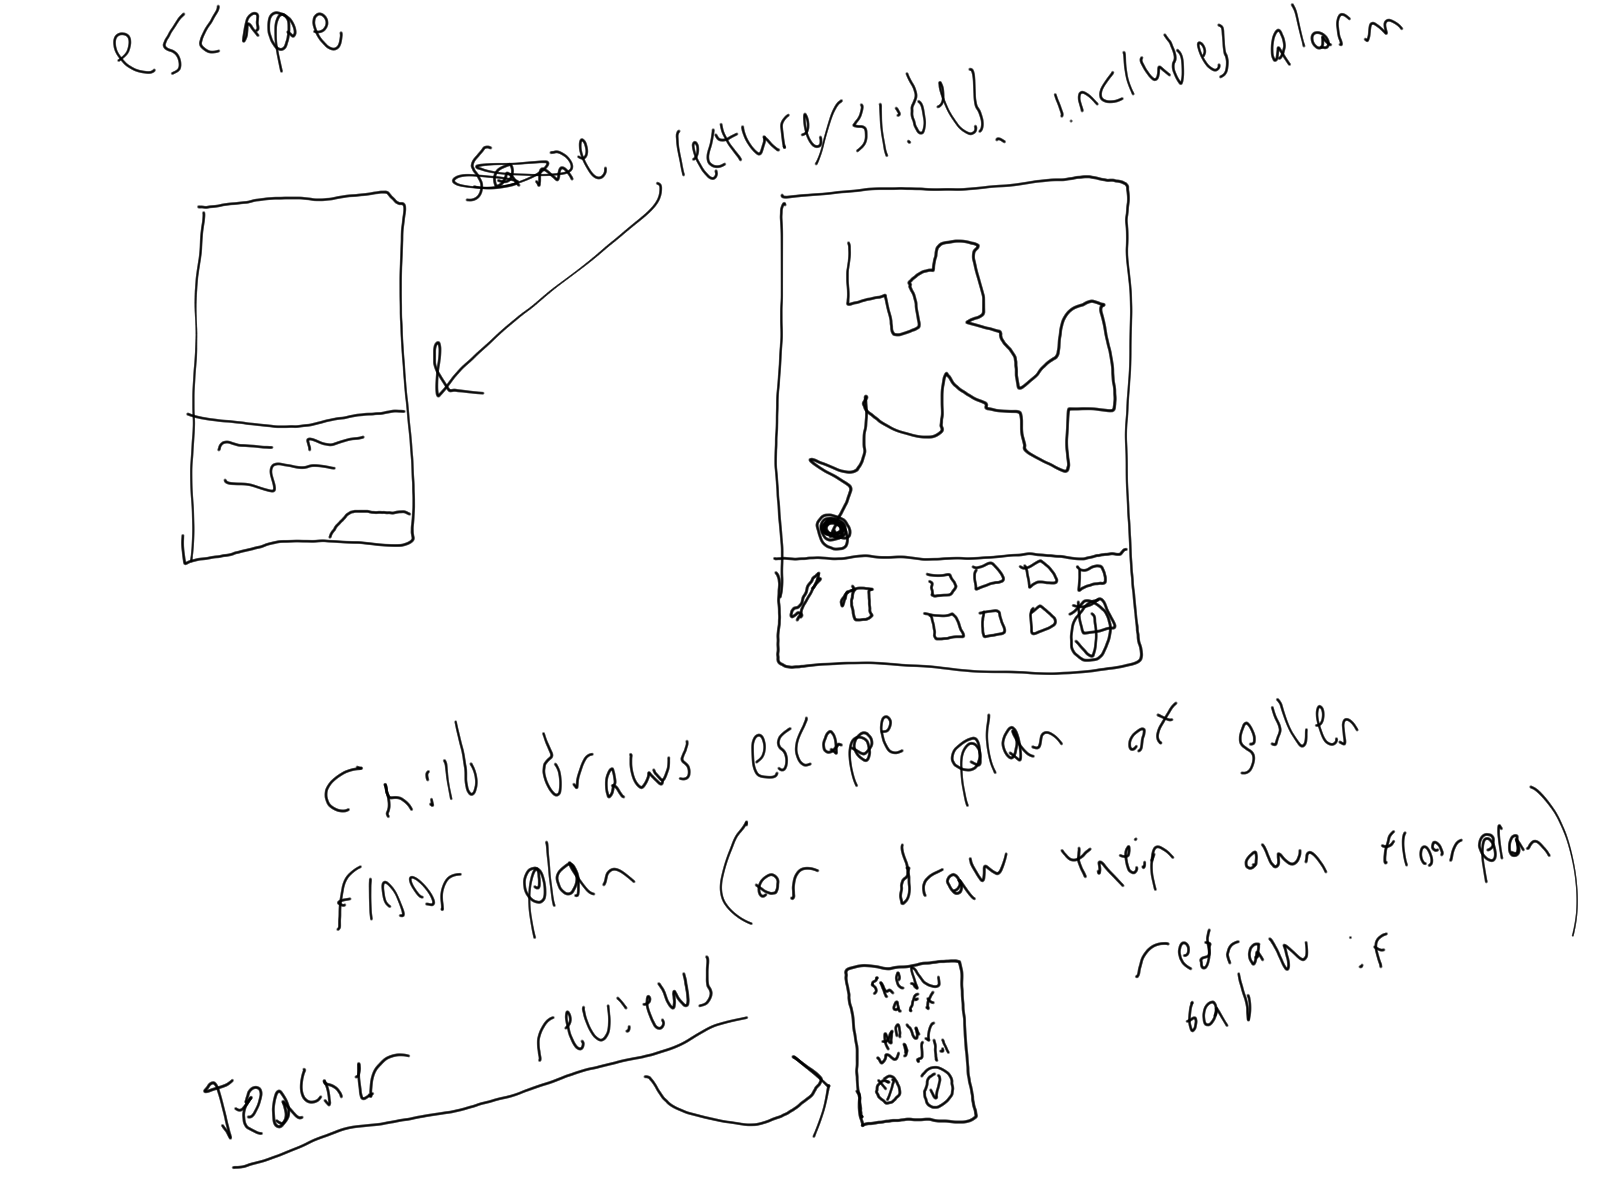 escape
lecture/slides. includes alarm
child draws escape plan at given
floor plan (or draw their own floorplan)
redraw if
bad
Teacher reviews